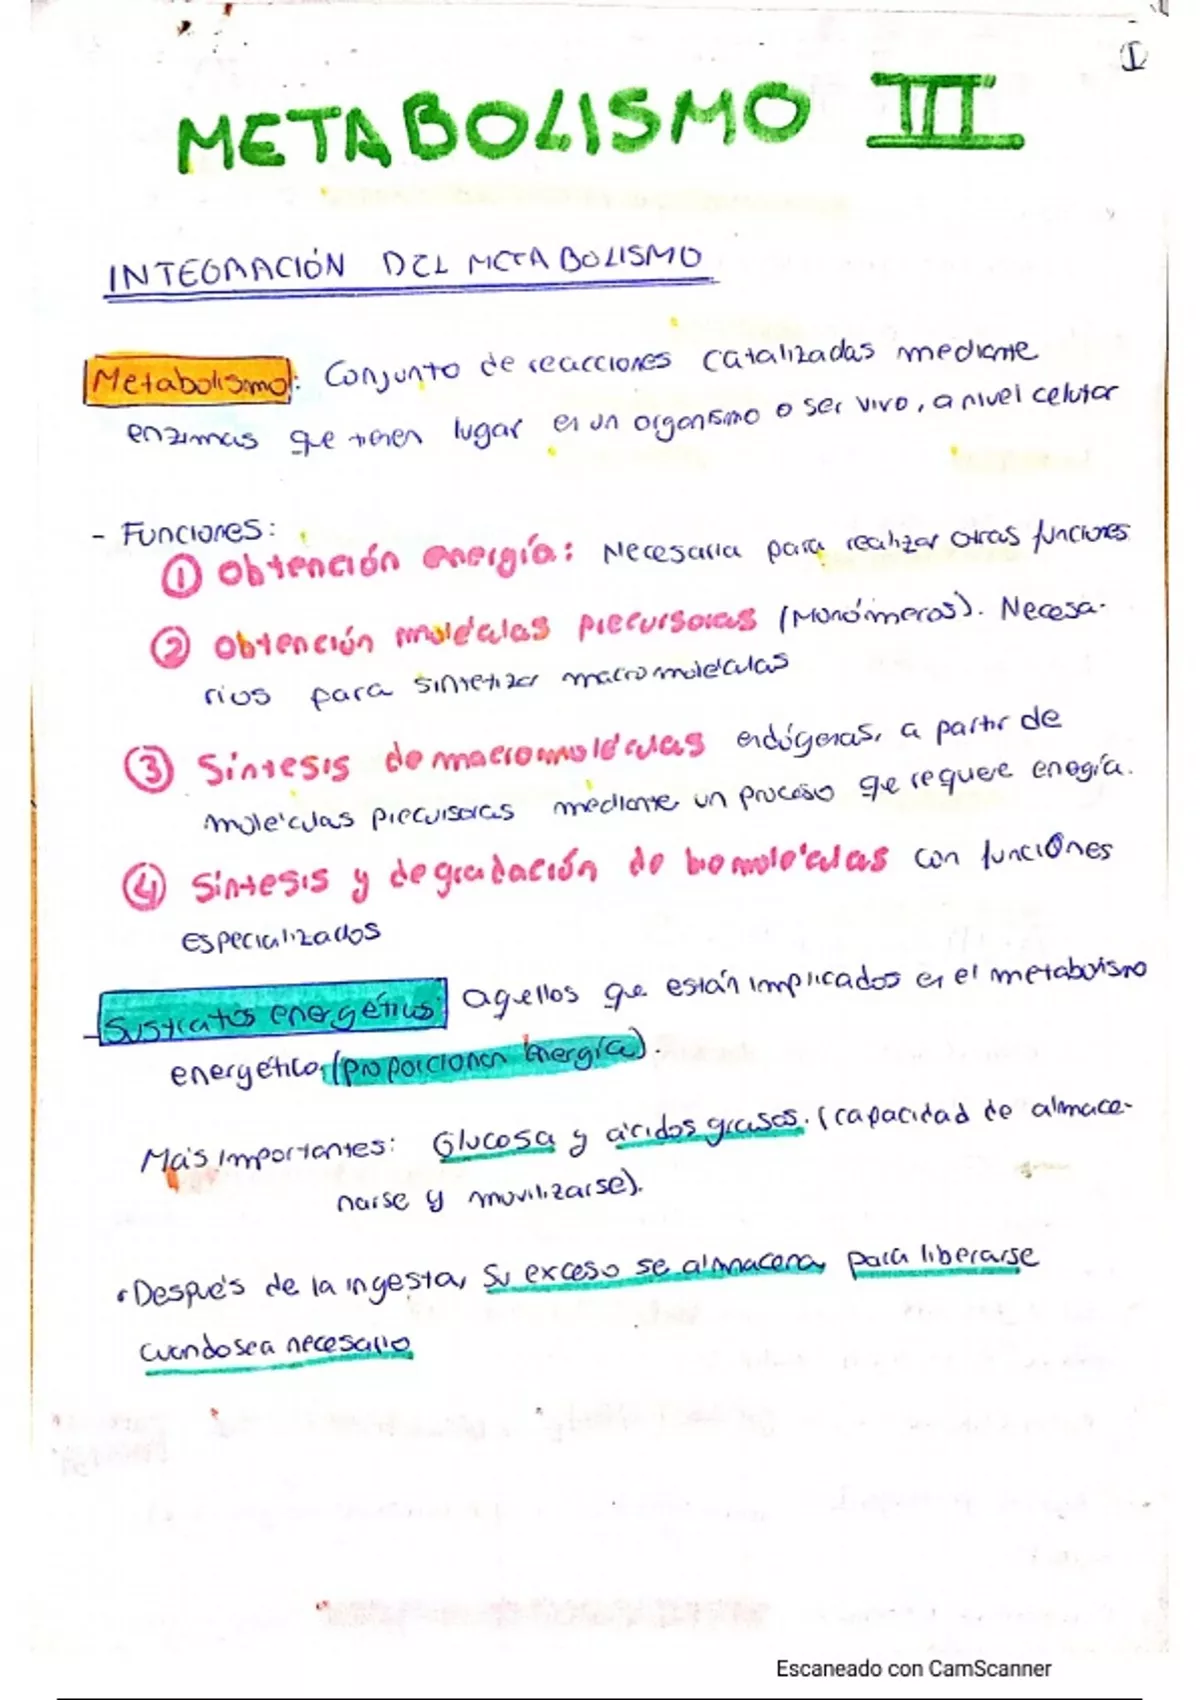 I
METABOLISMO III
INTEGRACIÓN DEL METABOLISMO
Metabolismo: Conjunto de reacciones catalizadas mediante
enzimas que tienen lugar en un organismo o ser vivo, a nivel celular
- Funciones:
① Obtención energía: Necesaria para realizar otras funciones
② Obtención moléculas precursoras (Monómeros). Necesa-
rios para sintetizar macromoléculas
③ Síntesis de macromoléculas endógenas, a partir de
moléculas precursoras mediante un proceso que requiere energía.
④ Síntesis y degradación de biomoléculas con funciones
especializados
- Sustratos energéticos: aquellos que están implicados en el metabolismo
energético (proporcionan energía).
Más importantes: Glucosa y ácidos grasos. (capacidad de almace-
narse y movilizarse).
• Después de la ingesta, su exceso se almacena, para liberarse
cuando sea necesario
Escaneado con CamScanner